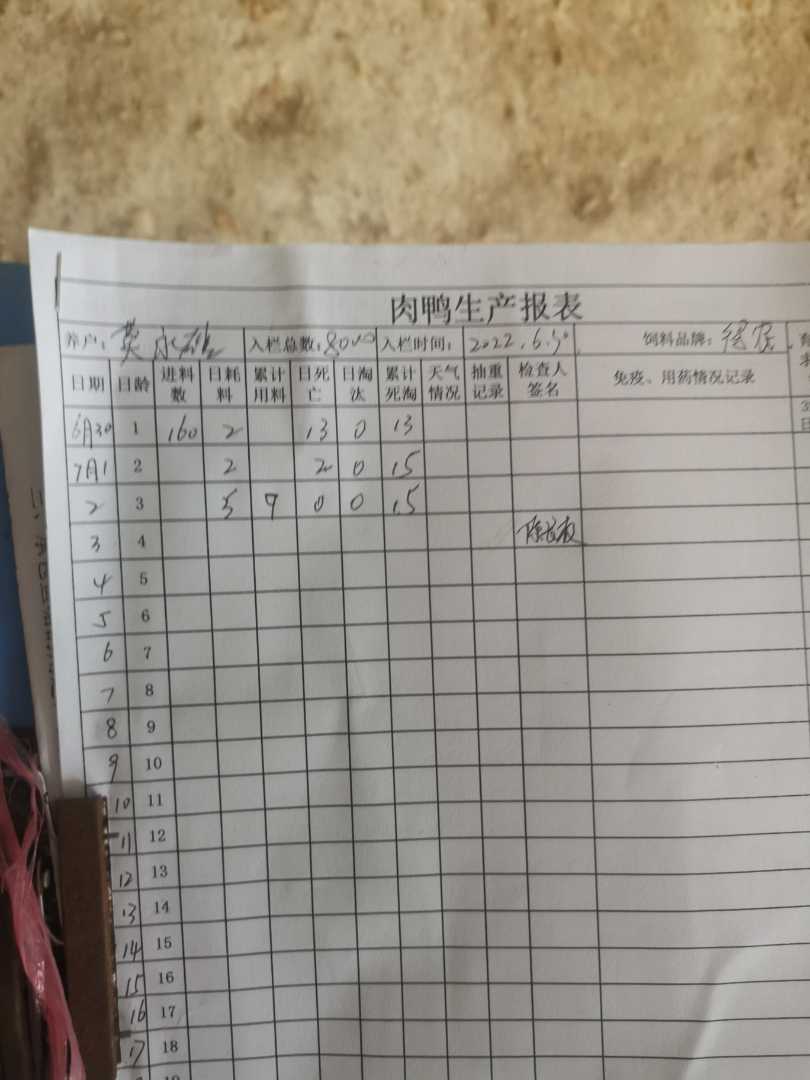 肉鸭生产报表
养户: 黄永雄 入栏总数: 8000 入栏时间: 2022.6.30 饲料品牌:
日期 日龄 进料数 日耗料 累计用料 日死亡 日淘汰 累计死淘 天气情况 抽重记录 检查人签名 免疫、用药情况记录
6月30 1 160 2 13 0 13
7月1 2 2 2 0 15
2 3 5 7 0 0 15
3 4
4 5
5 6
6 7
7 8
8 9
9 10
10 11
11 12
12 13
13 14
14 15
15 16
16 17
17 18